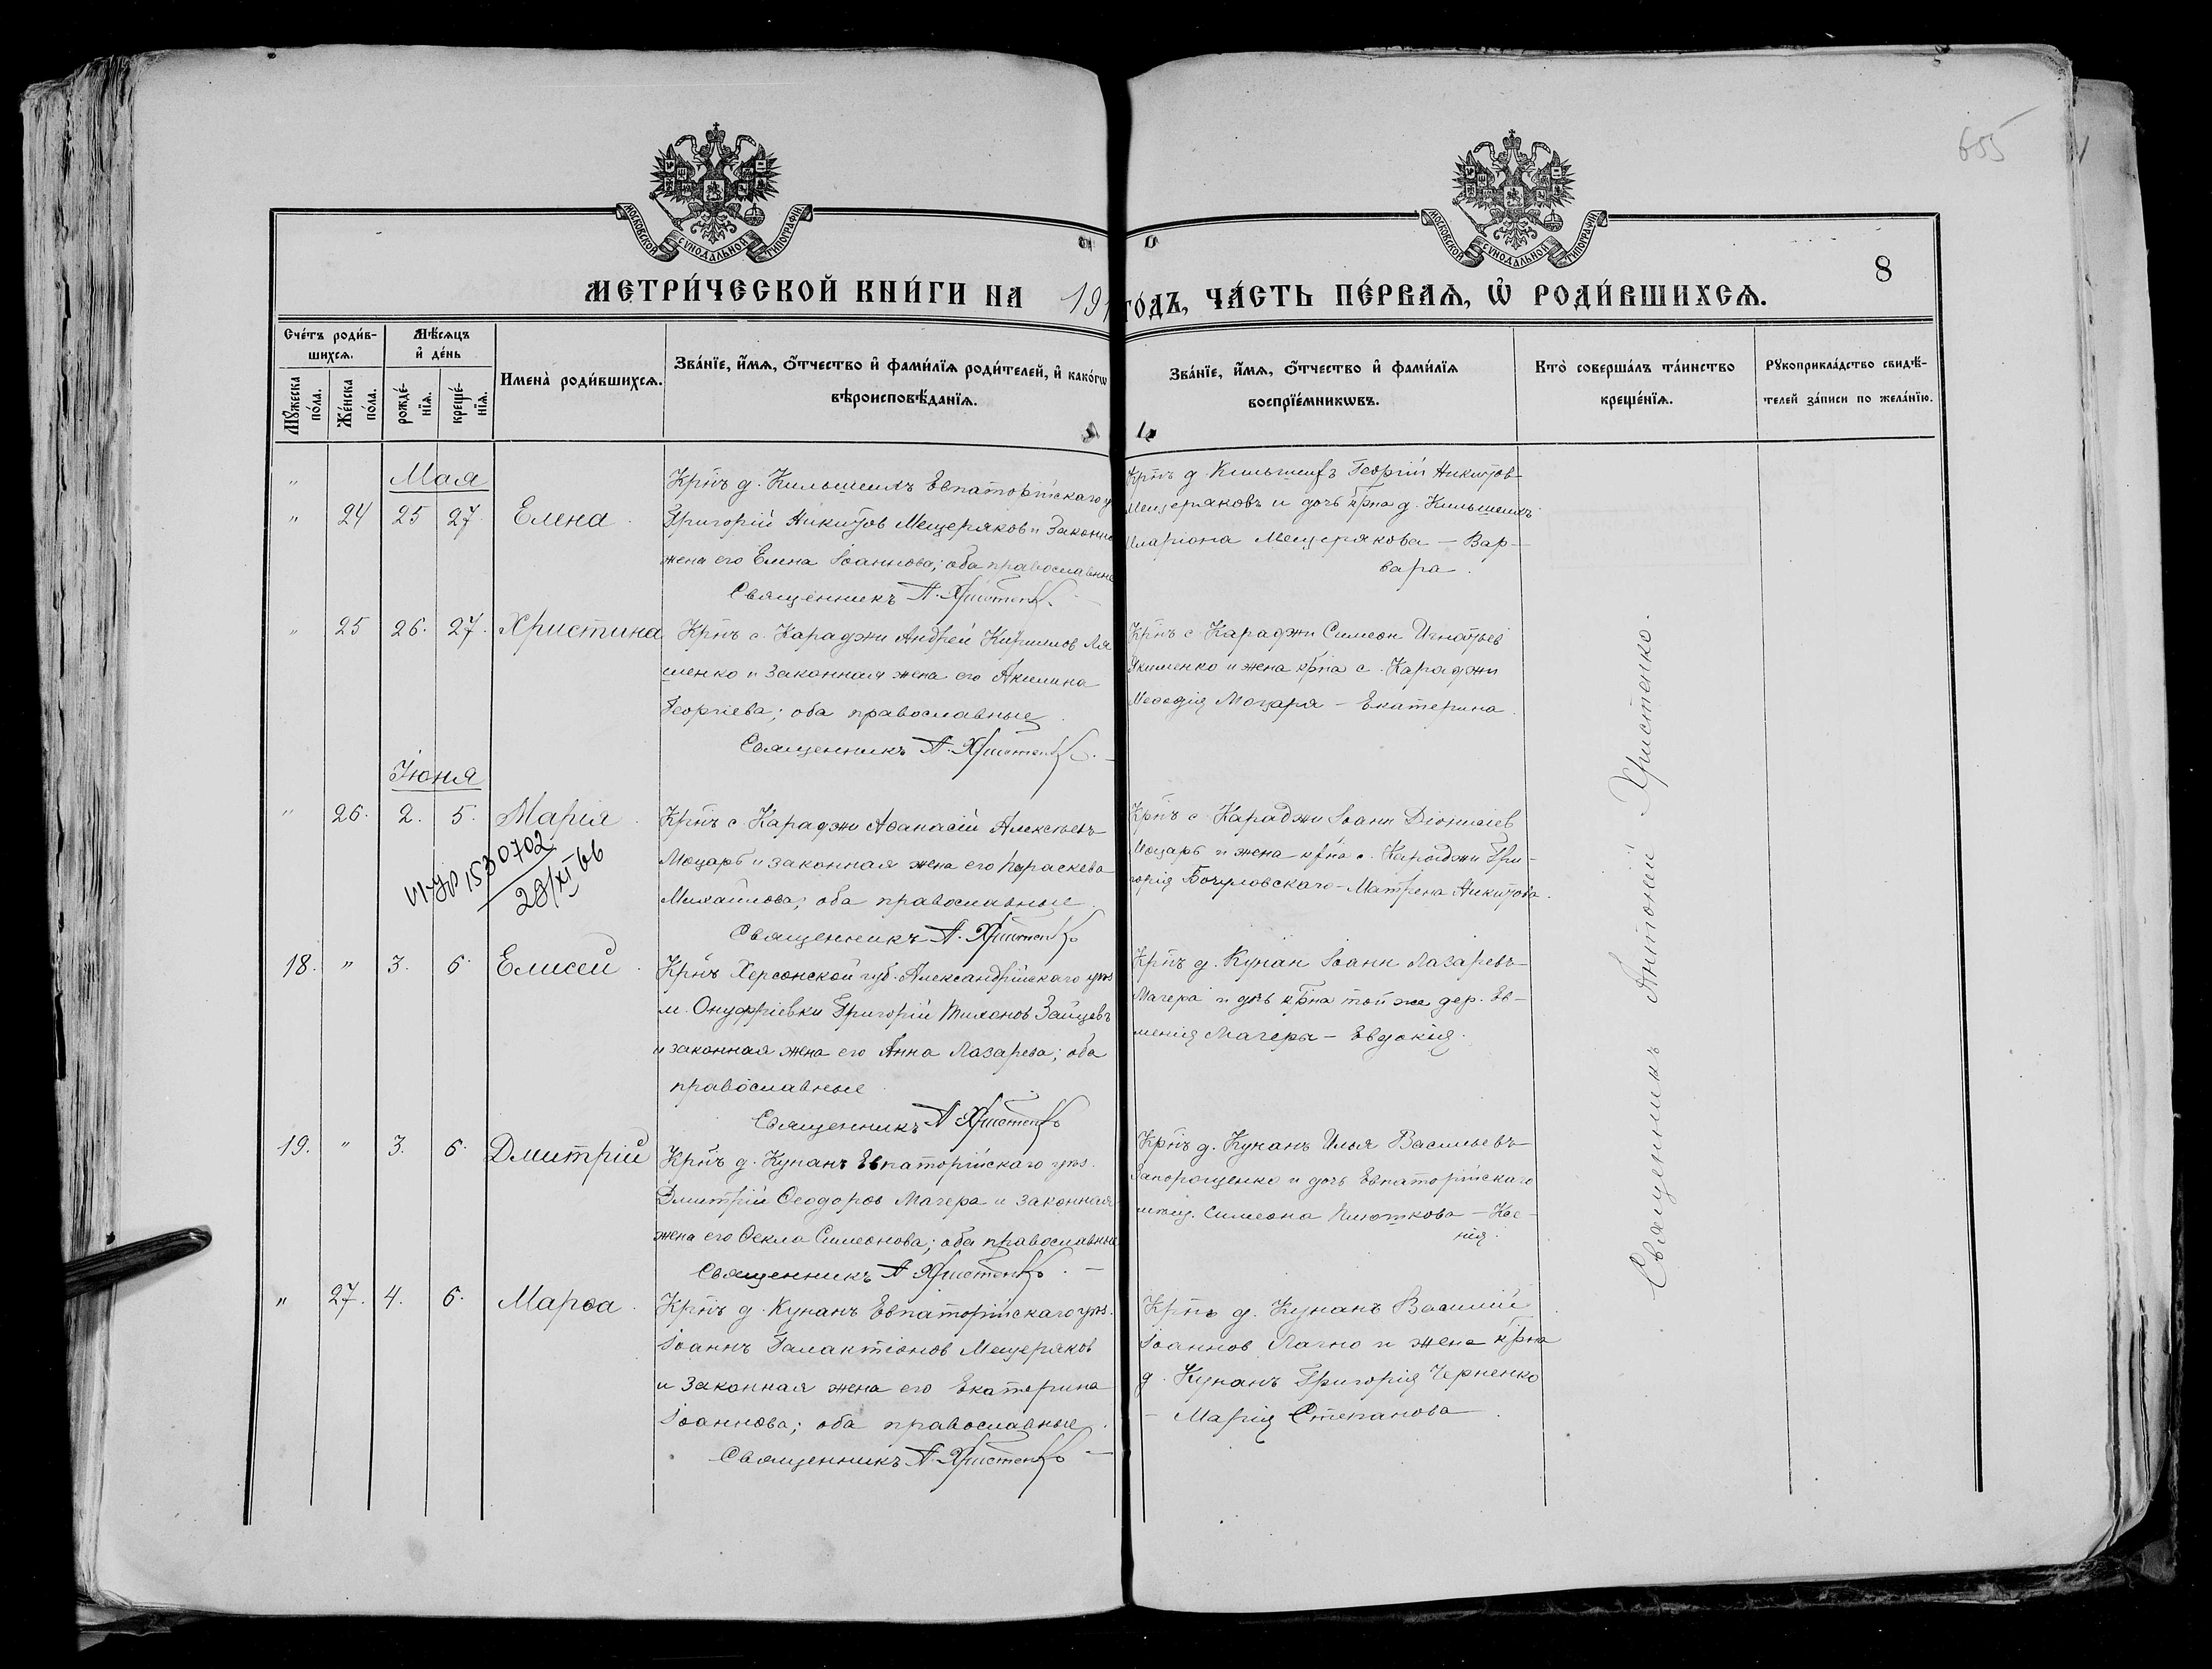 655
МОСКОВСКОЙ СѴНОДАЛЬНОЙ ТИПОГРАФІИ
МОСКОВСКОЙ СѴНОДАЛЬНОЙ ТИПОГРАФІИ
8
МЕТРИ́ЧЕСКОЙ КНИ́ГИ НА 191 ГО́ДЪ, ЧА́СТЬ ПЕ́РВАѦ, Ѡ҆ РОДИ́ВШИХСѦ.
Сче́тъ роди́в-
шихсѧ.
Мꙋ́жеска по́ла.
Же́нска по́ла.
Мѣ́сѧцъ
и҆ де́нь
рожде́-
нїѧ.
креще́-
нїѧ.
Имена̀ роди́вшихсѧ.
Зва́нїе, и҆́мѧ, ѻ҆́тчество и҆ фами́лїѧ роди́телей, и҆ како́гѡ
вѣроисповѣ́данїѧ.
Зва́нїе, и҆́мѧ, ѻ҆́тчество и҆ фами́лїѧ
воспрїе́мникѡвъ.
Кто̀ соверша́лъ та́инство
креще́нїѧ.
Рꙋкоприкла́дство свидѣ́-
телей за́писи по жела́нїю.
Мая
" 24 25 27. Елена.
Крн̃ъ д. Кильшеихъ Евпаторійскаго у
Григорій Никитов Мещеряков и Законна
жена его Елена Іоаннова; оба православные
Священникъ А. Христенко
Крн̃ъ д. Георгій Никитов
Мещеряковъ и дочь крн̃а д.
Иларіона Мещерякова – Вар-
вара.
" 25 26. 27. Христина
Крн̃ъ с. Караджи Андрей Кириллов Ля
шенко и законная жена его Акилина
Георгіева; оба православные.
Священникъ А. Христенко.
Крн̃ъ с. Караджи Симеон Игнатьев
Якименко и жена крн̃а с. Караджи
Меѳодія Моцаря – Екатерина.
Іюня
" 26. 2. 5. Марія.
1530702
28/XI 66
Крн̃ъ с. Караджи Аѳанасій Алексѣевъ
Моцарь и законная жена его Параскева
Михайлова; оба православные.
Священникъ А. Христенко
Крн̃ъ с. Караджи Іоанн Діонисіев
Моцарь и жена крн̃а с. Караджи Гри-
горія – Матрена Никитова.
18. " 3. 6. Елисей.
Крн̃ъ Херсонской губ. Александрійскаго уѣз
м. Онуфріевки Григорій Тихонов Зайцевъ
и законная жена его Анна Лазарева; оба
православные.
Священникъ А Христенко
Крн̃ъ д. Кунан Іоанн Лазаревъ
Магера и дочь крн̃а той же дер. Ев-
менія Магеры – Евдокія.
19. " 3. 6. Дмитрій
Крн̃ъ д. Кунанъ Евпаторійскаго уѣз.
Дмитрій Ѳеодоров Магера и законная
жена его Ѳекла Симеонова; оба православные
Священникъ А Христенко. –
Крн̃ъ д. Кунанъ Илья Васильевъ
Запорощенко и дочь Евпаторійскаго
мѣщ. Симеона Плюткова – Ксе-
нія.
" 27. 4. 6. Марѳа.
Крн̃ъ д. Кунанъ Евпаторійскаго уѣз.
Іоаннъ Галактіонов Мещеряков
и законная жена его Екатерина
Іоаннова; оба православные.
Священникъ А. Христенко –
Крн̃ъ д. Кунанъ Василій
Іоаннов Лагно и жена крн̃а
д. Кунанъ Григорія Черненко
– Марія Степанова.
Священникъ Антоній Христенко.